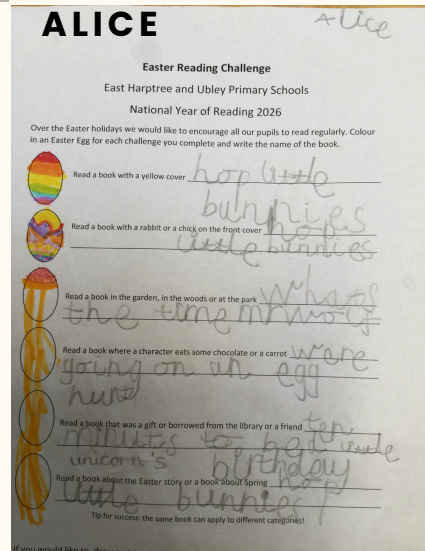 ALICE
Alice
Easter Reading Challenge
East Harptree and Ubley Primary Schools
National Year of Reading 2026
Over the Easter holidays we would like to encourage all our pupils to read regularly. Colour
in an Easter Egg for each challenge you complete and write the name of the book.
Read a book with a yellow cover hop little
bunnies
Read a book with a rabbit or a chick on the front cover hop
little bunnies
Read a book in the garden, in the woods or at the park whats
the time mr wolf
Read a book where a character eats some chocolate or a carrot were
going on an egg
hunt
Read a book that was a gift or borrowed from the library or a friend ten
minutes to bed
unicorn's birthday
Read a book about the Easter story or a book about Spring hop
little bunnies
Tip for success: the same book can apply to different categories!
If you would like to